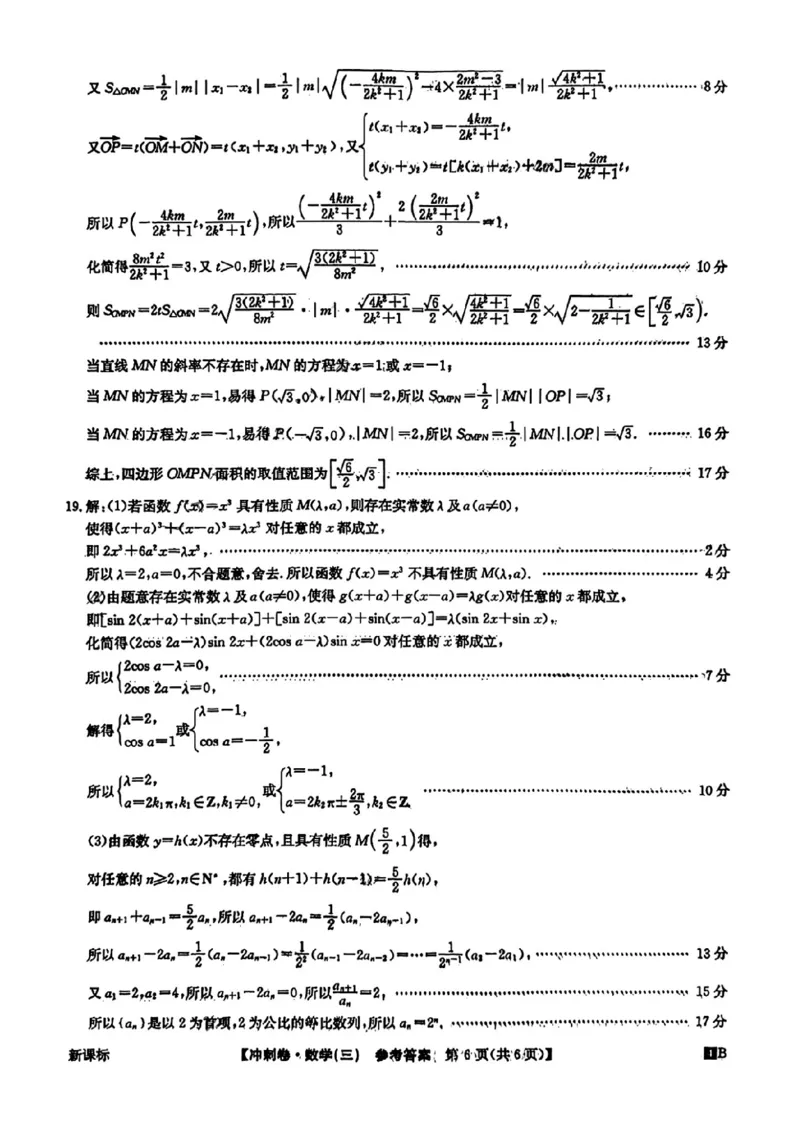 又 S△OMN=1/2|m||x₁-x₂|=1/2|m|√((-4km/(2k²+1))²-4×(2m²-3)/(2k²+1))=|m|√(4k²+1)/(2k²+1), ……8分
又OP→=t(OM→+ON→)=t(x₁+x₂,y₁+y₂),又{t(x₁+x₂)=-4km/(2k²+1)t, t(y₁+y₂)=t[k(x₁+x₂)+2m]=2m/(2k²+1)t,
所以 P(-4km/(2k²+1)t,2m/(2k²+1)t),所以(-4km/(2k²+1)t)²/3+2(2m/(2k²+1)t)²/3=1,
化简得8m²t²/(2k²+1)=3,又 t>0,所以 t=√(3(2k²+1)/8m²), ……10分
则 S_OMPN=2tS△OMN=2√(3(2k²+1)/8m²)·|m|·√(4k²+1)/(2k²+1)=√6/2×√((4k²+1)/(2k²+1))=√6/2×√(2-1/(2k²+1))∈[√6/2,√3).
……13分
当直线 MN 的斜率不存在时,MN 的方程为x=1或 x=-1;
当 MN 的方程为 x=1,易得 P(√3,0),|MN|=2,所以 S_OMPN=1/2|MN||OP|=√3;
当 MN 的方程为x=-1,易得 P(-√3,0),|MN|=2,所以 S_OMPN=1/2|MN|.|OP|=√3. ……16分
综上,四边形 OMPN 面积的取值范围为[√6/2,√3]. ……17分
19.解:(1)若函数 f(x)=x³ 具有性质 M(λ,a),则存在实常数 λ 及 a(a≠0),
使得(x+a)³+(x-a)³=λx³ 对任意的 x 都成立,
即 2x³+6a²x=λx³, ……2分
所以 λ=2,a=0,不合题意,舍去.所以函数 f(x)=x³ 不具有性质 M(λ,a). ……4分
(2)由题意存在实常数 λ 及 a(a≠0),使得 g(x+a)+g(x-a)=λg(x)对任意的 x 都成立,
即[sin 2(x+a)+sin(x+a)]+[sin 2(x-a)+sin(x-a)]=λ(sin 2x+sin x),
化简得(2cos 2a-λ)sin 2x+(2cos a-λ)sin x=0 对任意的 x 都成立,
所以{2cos a-λ=0, 2cos 2a-λ=0, ……7分
解得{λ=2, cos a=1 或{λ=-1, cos a=-1/2,
所以{λ=2, a=2k₁π,k₁∈Z,k₁≠0, 或{λ=-1, a=2k₂π±2π/3,k₂∈Z. ……10分
(3)由函数 y=h(x)不存在零点,且具有性质 M(5/2,1)得,
对任意的 n≥2,n∈N*,都有 h(n+1)+h(n-1)=5/2h(n),
即 aₙ₊₁+aₙ₋₁=5/2aₙ,所以 aₙ₊₁-2aₙ=1/2(aₙ-2aₙ₋₁),
所以 aₙ₊₁-2aₙ=1/2(aₙ-2aₙ₋₁)=1/2²(aₙ₋₁-2aₙ₋₂)=…=1/2ⁿ⁻¹(a₂-2a₁), ……13分
又 a₁=2,a₂=4,所以 aₙ₊₁-2aₙ=0,所以aₙ₊₁/aₙ=2, ……15分
所以{aₙ}是以 2 为首项,2 为公比的等比数列,所以 aₙ=2ⁿ. ……17分
新课标 【冲刺卷·数学(三) 参考答案 第 6 页(共 6 页)】 ⅠB